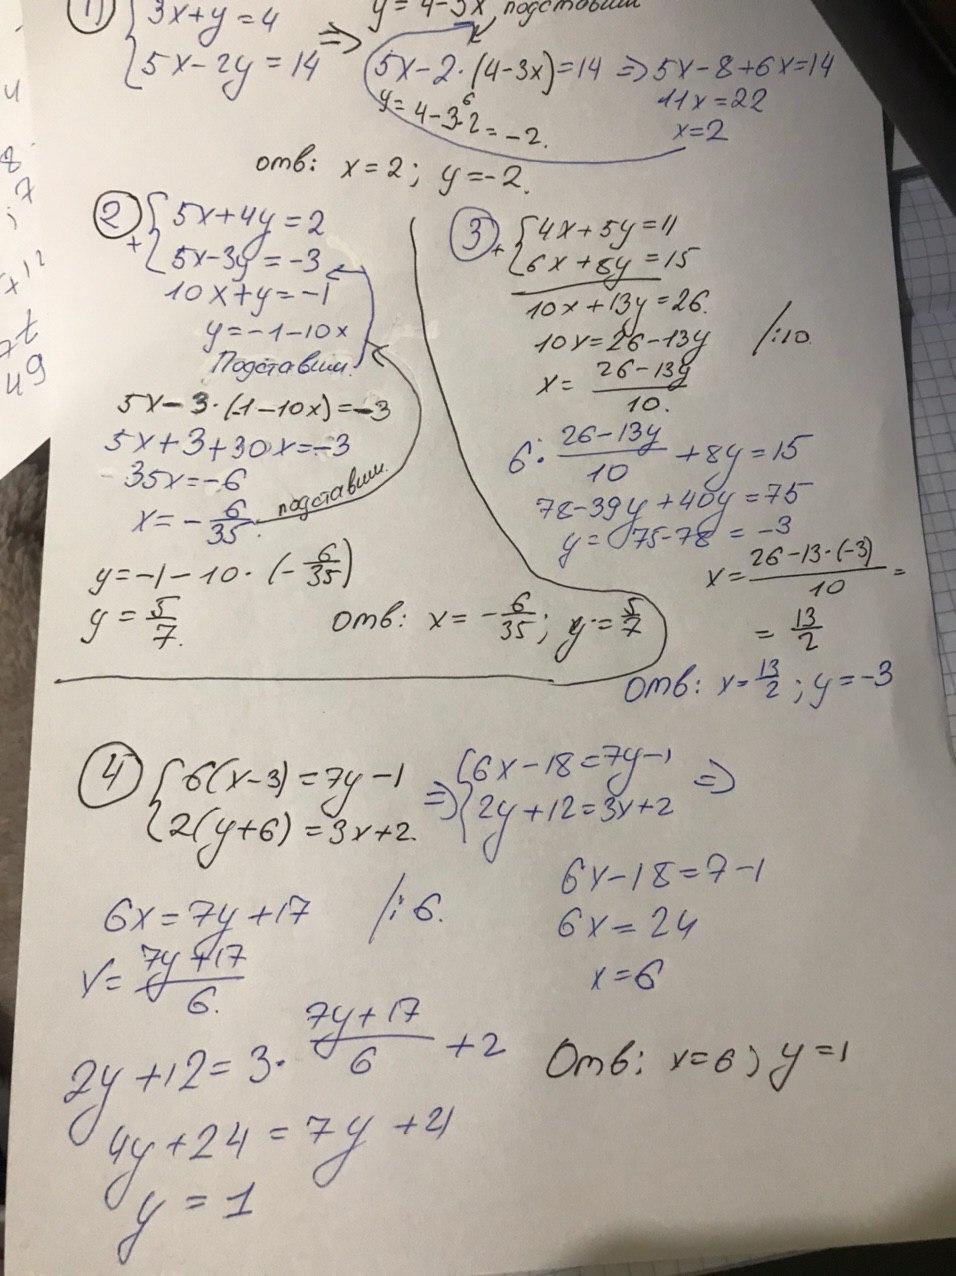 1) { 3x+y=4
y=4-3x подставим
5x-2y=14 => 5x-2·(4-3x)=14 => 5x-8+6x=14
y=4-3·2=-2.
6
11x=22
x=2
отв: x=2; y=-2.
2) + { 5x+4y=2
5x-3y=-3
10x+y=-1
y=-1-10x
Подставим:
5x-3·(-1-10x)=-3
5x+3+30x=-3
35x=-6
x=-6/35 подставим.
y=-1-10·(-6/35)
y=5/7.
отв: x=-6/35; y=5/7
3) + { 4x+5y=11
6x+8y=15
10x+13y=26.
10x=26-13y /:10
x=26-13y/10.
6·26-13y/10+8y=15
78-39y+40y=75
y=75-78=-3
x=26-13·(-3)/10=
=13/2
Отв: x=13/2; y=-3
4) { 6(x-3)=7y-1
2(y+6)=3x+2.
=> { 6x-18=7y-1
2y+12=3x+2 =>
6x=7y+17 /:6.
x=7y+17/6.
2y+12=3·7y+17/6+2
4y+24=7y+21
y=1
6x-18=7-1
6x=24
x=6
Отв: x=6; y=1